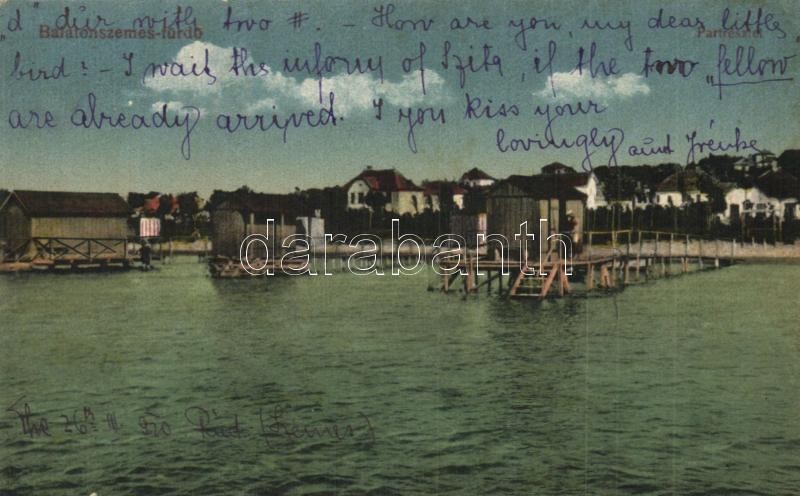 "d" dur with two #. - How are you, my dear little
Balatonszemes-fürdő
Partrészlet
bird? - I wait the inform of Szita, if the two "fellow
are already arrived. I you kiss your
lovingly aunt Irénke
darabanth
The 26th III 920 (Szemes)